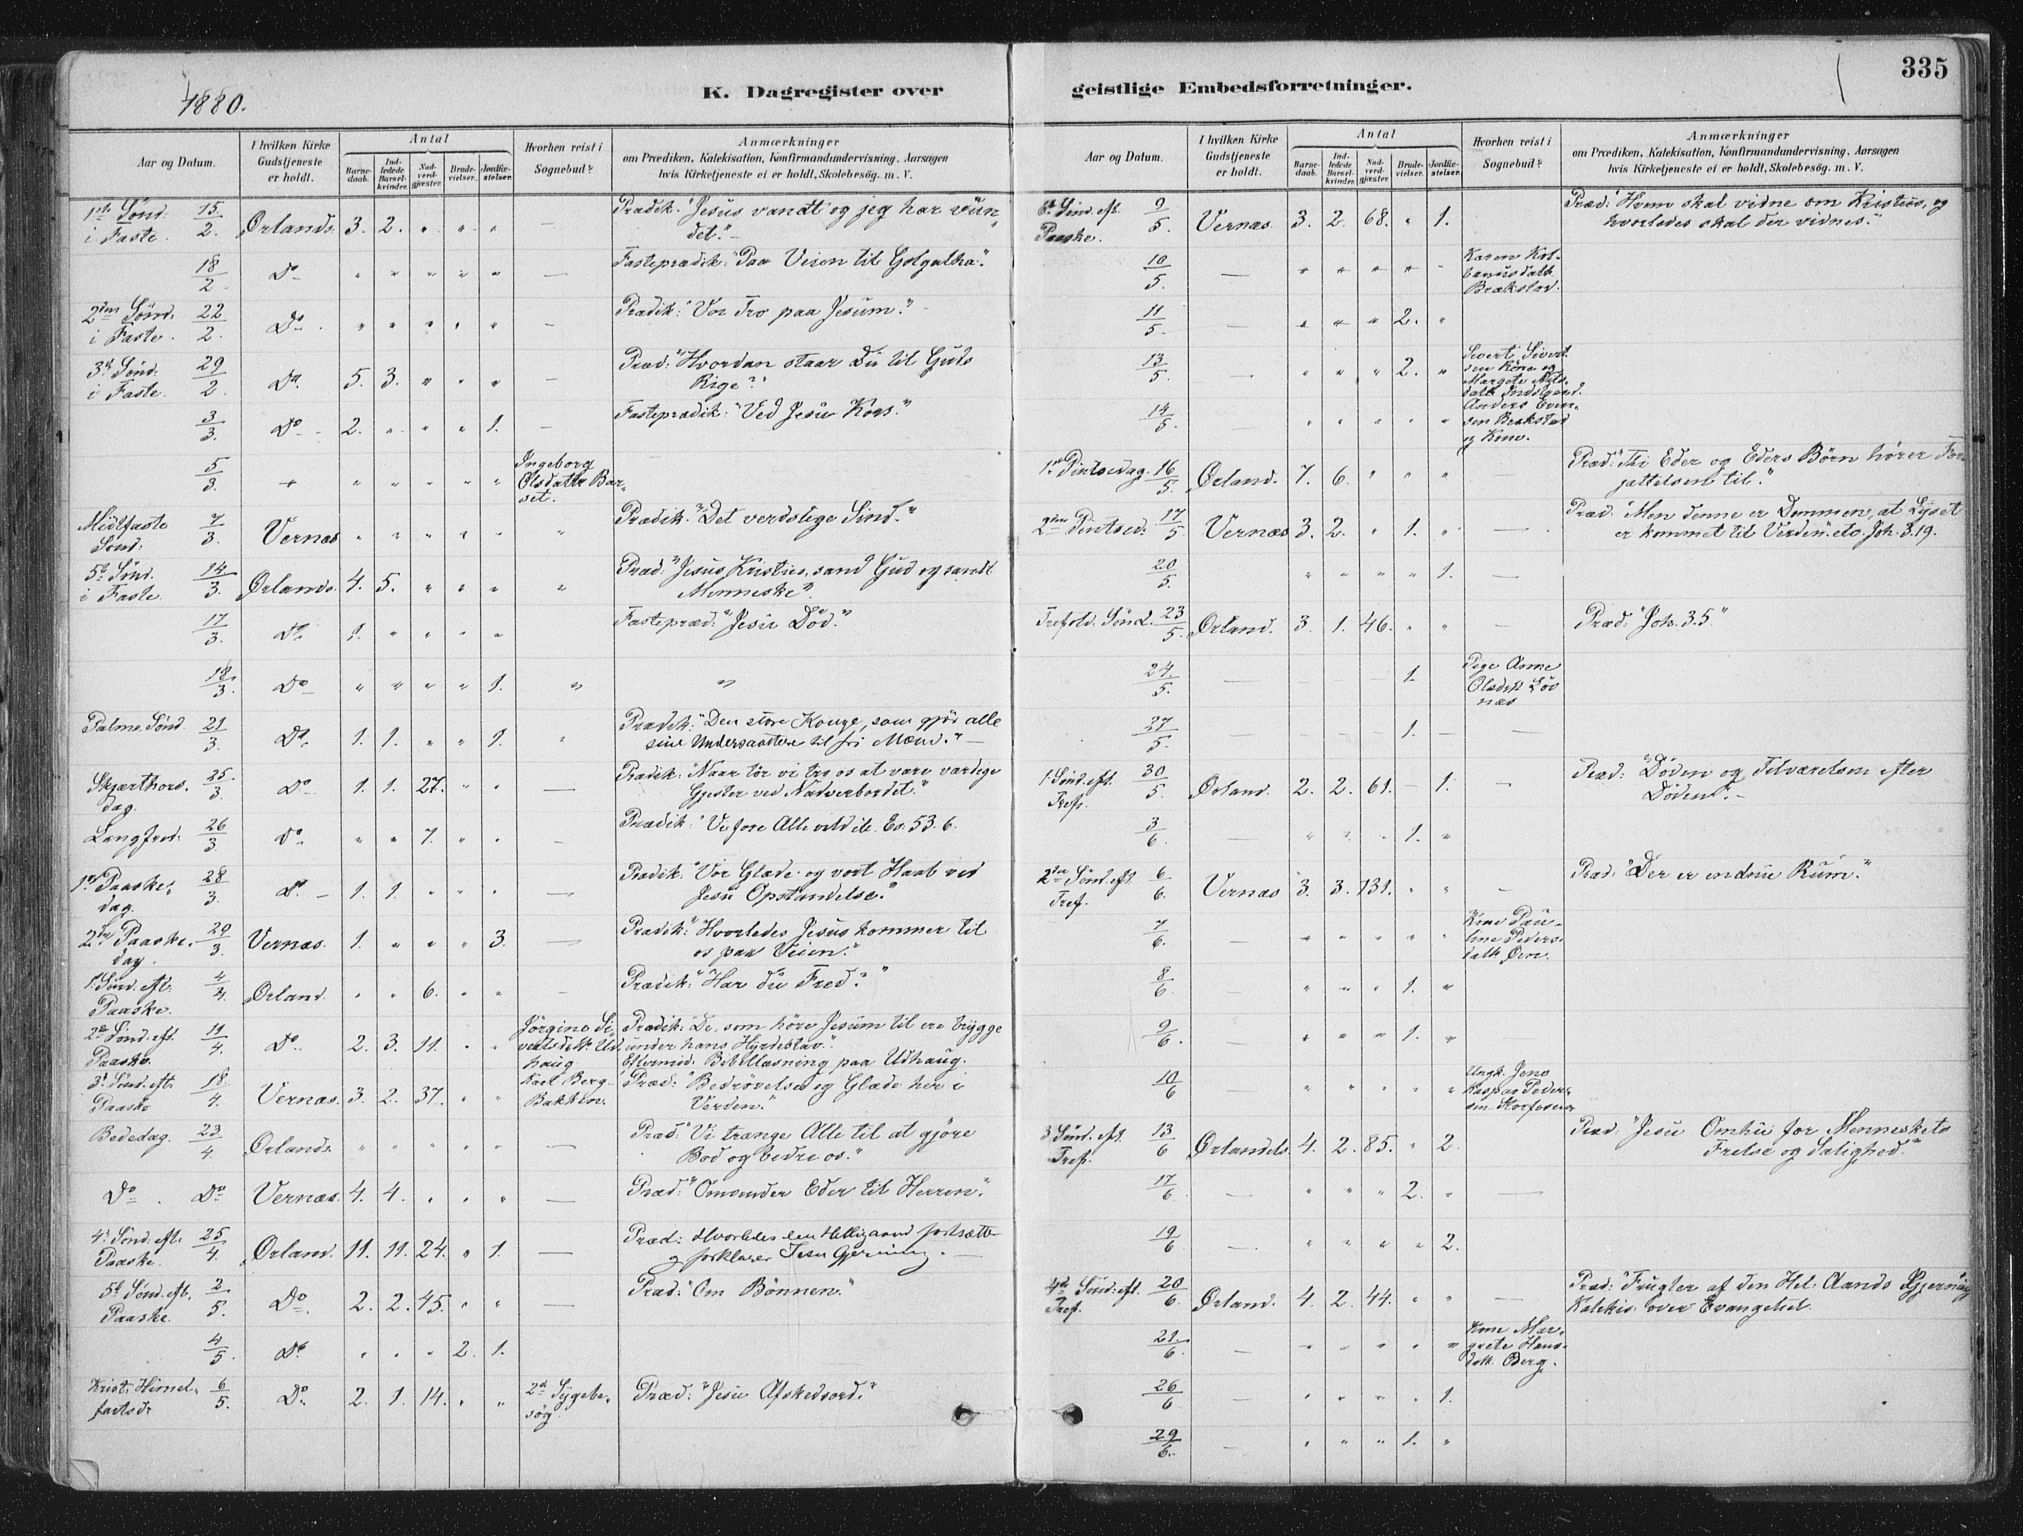 1880.
K. Dagregister over
geistlige Embedsforretninger.
335
Aar og Datum.
I hvilken Kirke Gudstjeneste er holdt.
Antal
Barnedaab.
Indledede Barselkvinder.
Nadverdgjæster.
Brudevielser.
Jordfæstelser.
Hvorhen reist i Sognebud?
Anmærkninger
om Prædiken, Katekisation, Konfirmandundervisning, Aarsagen
hvis Kirketjeneste ei er holdt, Skolebesøg. m. V.
1ste Sønd. i Faste. 15/2. Ørlands. 3. 2. " " " — Prædik. "Jesus vandt og jeg har vundet." —
18/2. Do " " " " " — Fasteprædik: "Paa Veien til Golgatha".
2den Sønd. i Faste. 22/2. Do " " " " " — Prædik: "Vor Tro paa Jesum."
3d Sønd. i Faste. 29/2. Do. 5. 3. " " " — Præd: "Hvordan staar Du til Guds Rige?"
3/3. Do 2. " " " 1. — Fasteprædik: "Ved Jesu Kors."
5/3. " " " " " Ingeborg Olsdatter Barset.
Midfaste Sønd: 7/3. Vernæs " " " " " " Prædik. "Det verdslige Sind."
5t Sønd. i Faste. 14/3. Ørlands. 4. 5. " " " " Præd: "Jesus Kristus, sand Gud og sandt Menneske".
17/3. Do. 1. " " " " Fastepræd: "Jesu Død."
18/3. Do " " " " 1. " "
Palme Sønd. 21/3. Do. 1. 1. " " 1. " Prædik: "Den store Konge, som gjør alle sine Undersaatter til fri Mænd." —
Skjærthorsdag. 25/3. Do 1. 1. 27. " " — Prædik: "Naar tør vi tro os at være værdige Gjester ved Nadverbordet."
Langfred. 26/3. Do " " 7. " " — Prædik: "Ve fore Alle vild etc. Es. 53. 6.
1ste Paaskedag. 28/3. Do — 1. 1. " " " — Prædik. "Vor Glæde og vort Haab ved Jesu Opstandelse."
2den Paaskedag. 29/3. Vernæs. 1. " " " 3. — Prædik: "Hvorledes Jesus kommer til os paa Veien."
1. Sønd. eft. Paaske. 4/4. Ørland. " " 6. " " — Prædik: "Har du Fred?"
2d Sønd. eft. Paaske. 11/4. Do. 2. 3. 11. " " Jørgine Sivertsdatt. Udhaug Prædik: "De, som høre Jesum til ere trygge under hans Hyrdestav." Eftermid. Bibellæsning paa Udhaug.
3d Sønd. eft. Paaske 18/4. Vernæs. 3. 2. 37. " " Karl Berg-Bakken. Præd: "Bedrøvelse og Glæde her i Verden."
Bededag. 23/4. Ørlands. " " " " " — Præd: "Vi trænge Alle til at gjøre Bod og bedre os."
Do. Do Vernæs. 4. 4. " " " — Præd: "Omvender Eder til Herren".
4d Sønd. eft. Paaske. 25/4. Ørland. 11. 11. 24. " 1. — Præd: Hvorledes den Helligaand fortsætter og forklarer Jesu Gjerning. —
5t Sønd. eft. Paaske. 2/5. Do. 2. 2. 45. " " — Præd: "Om Bønnen."
4/5. Do " " " 2. 1.
Krist: Himmelfartsd: 6/5. Do. 2. 1. 14. " " 2d Sygebesøg. Præd: "Jesu Afskedsord."
Aar og Datum.
I hvilken Kirke Gudstjeneste er holdt.
Antal
Barnedaab.
Indledede Barselkvinder.
Nadverdgjæster.
Brudevielser.
Jordfæstelser.
Hvorhen reist i Sognebud?
Anmærkninger
om Prædiken, Katekisation, Konfirmandundervisning, Aarsagen
hvis Kirketjeneste ei er holdt, Skolebesøg. m. V.
6t Sønd. eft. Paaske. 9/5. Vernæs. 3. 2. 68. " 1. Præd: "Hvem skal vidne om Kristus, og hvorledes skal der vidnes."
10/5. — " " " " " Karen Brækstad.
11/5. — " " " 2. "
13/5. — " " " 2. " Sivert Sivertsen Kone og Margete
14/5. " " " " " Anders Brækstad og Kone.
1ste Pintsedag 16/5. Ørland. 7. 6. " " " Præd: "Thi Eder og Eders Børn hører Forjættelsen til."
2den Pintsed: 17/5. Vernæs 3. 2. " 1. " — Præd: "Men denne er Dommen, at Lyset er kommet til Verden" etc. Joh. 3. 19.
20/5. " " " " 1. —
Trefold. Sønd. 23/5. Ørland. 3. 1. 46. " " — Præd: "Joh. 3. 5."
24/5. — 1. Pige Anne Olsdatt
27/5. — 1. — —
1. Sønd. eft. Tref. 30/5. Ørland. 2. 2. 61. — 1. — Præd: "Døden og Tilværelsen efter Døden." —
3/6. — " " " 1. "
2den Sønd. eft. Tref. 6/6. Vernæs 3. 3. 131. " " — Præd: "Der er endnu Rum."
7/6. — " " " " " Kone Pauline Pedersdatt. Øren.
8/6. — " " " 1. "
9/6. — " " " 1. "
10/6 — " " " " " Ungk. Jens Kaspar Pedersen
3. Sønd. eft. Tref. 13/6 Ørlands. 4. 2. 85. " 2. Præd: "Jesu Omhu for Menneskets Frelse og Salighed."
17/6. — " " " 2. " —
19/6 — " " " " 2.
4d Sønd. eft. Tref. 20/6. Ørland. 4. 2. 44. " " — Præd: "Frugter af den Hel. Aands Gjerning Katekis: over Evangeliet.
21/6. — " " " " " Kone Margrete Hansdatt. Berg.
26/6 — " " " " 1.
29/6. — " " " 1. "